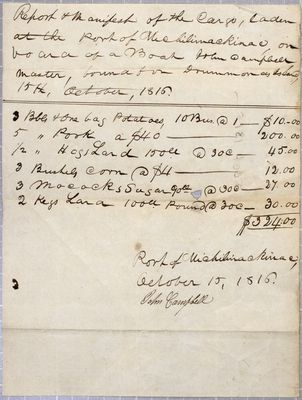 Report & Manifest of the Cargo, laden
at the Port of Michilimackinac, on
board of a Boat John Campbell
master, bound for Drummonds Island,
15th, October, 1816.
3 Bbls & one bag Potatoes, 10 Bus. @ 1 — $10.00
5 " Pork a $40 — " 200.00
1/2 " Hogs Lard 150lb @ 30c — " 45.00
3 Bushels Corn @ $4 — " 12.00
3 Mococks Sugar 90lb @ 30c — " 27.00
2 Kegs Lard 100lb Pound @ 30c — " 30.00
$324.00
Port of Michilimackinac,
October 15, 1816.
John Campbell